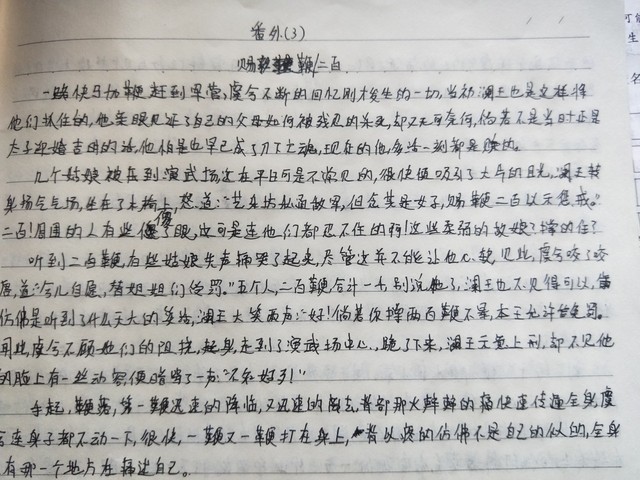 番外(3)
赐鞭二百
一路快马扬鞭赶到军营,虞兮不断的回忆刚才发生的一切,当初澜王也是这样将
他们抓住的,他亲眼见证了自己的父母如何被残忍的杀死,却无可奈何,倘若不是当时正是
太子迎婚吉时的话,他怕是也早已成了刀下亡魂,现在的他,多活一刻都是赚的。
几个姑娘被兵到演武场这在平日可是不常见的,很快便吸引了大片的目光,澜王转
身扬台气场,坐在了木椅上,怒道:"艺本坊私通敌军,但念其是女子,赐鞭二百以示惩戒。"
二百!周围的人有些傻了眼,这可是连他们都忍不住的啊!这些柔弱的姑娘?撑的住?
听到二百鞭,有些姑娘失声痛哭了起来,尽管这并不能让他心软,见此,虞兮咬了咬
唇,道:"兮儿自愿,替姐姐们受罚。"五个人,二百鞭合计一千,别说他了,澜王也不见得可以,
仿佛是听到了什么天大的笑话,澜王大笑两声:"好!倘若你撑两百鞭不晕,本王允许
因此,虞兮不顾她们的阻挠,起身走到了演武场中心,跪了下来,澜王示意上刑,却不见他
的脸上有一些动容,便暗骂了一声:"不知好歹!"
手起,鞭落,第一鞭迅速的降临,又迅速的离去,背部那火辣辣的痛快速传遍全身,虞
兮连身子都不动一下,很快,一鞭又一鞭打在身上,背以疼的仿佛不是自己的似的,全身
有那一个地方在痛述自己。
可能
生
名